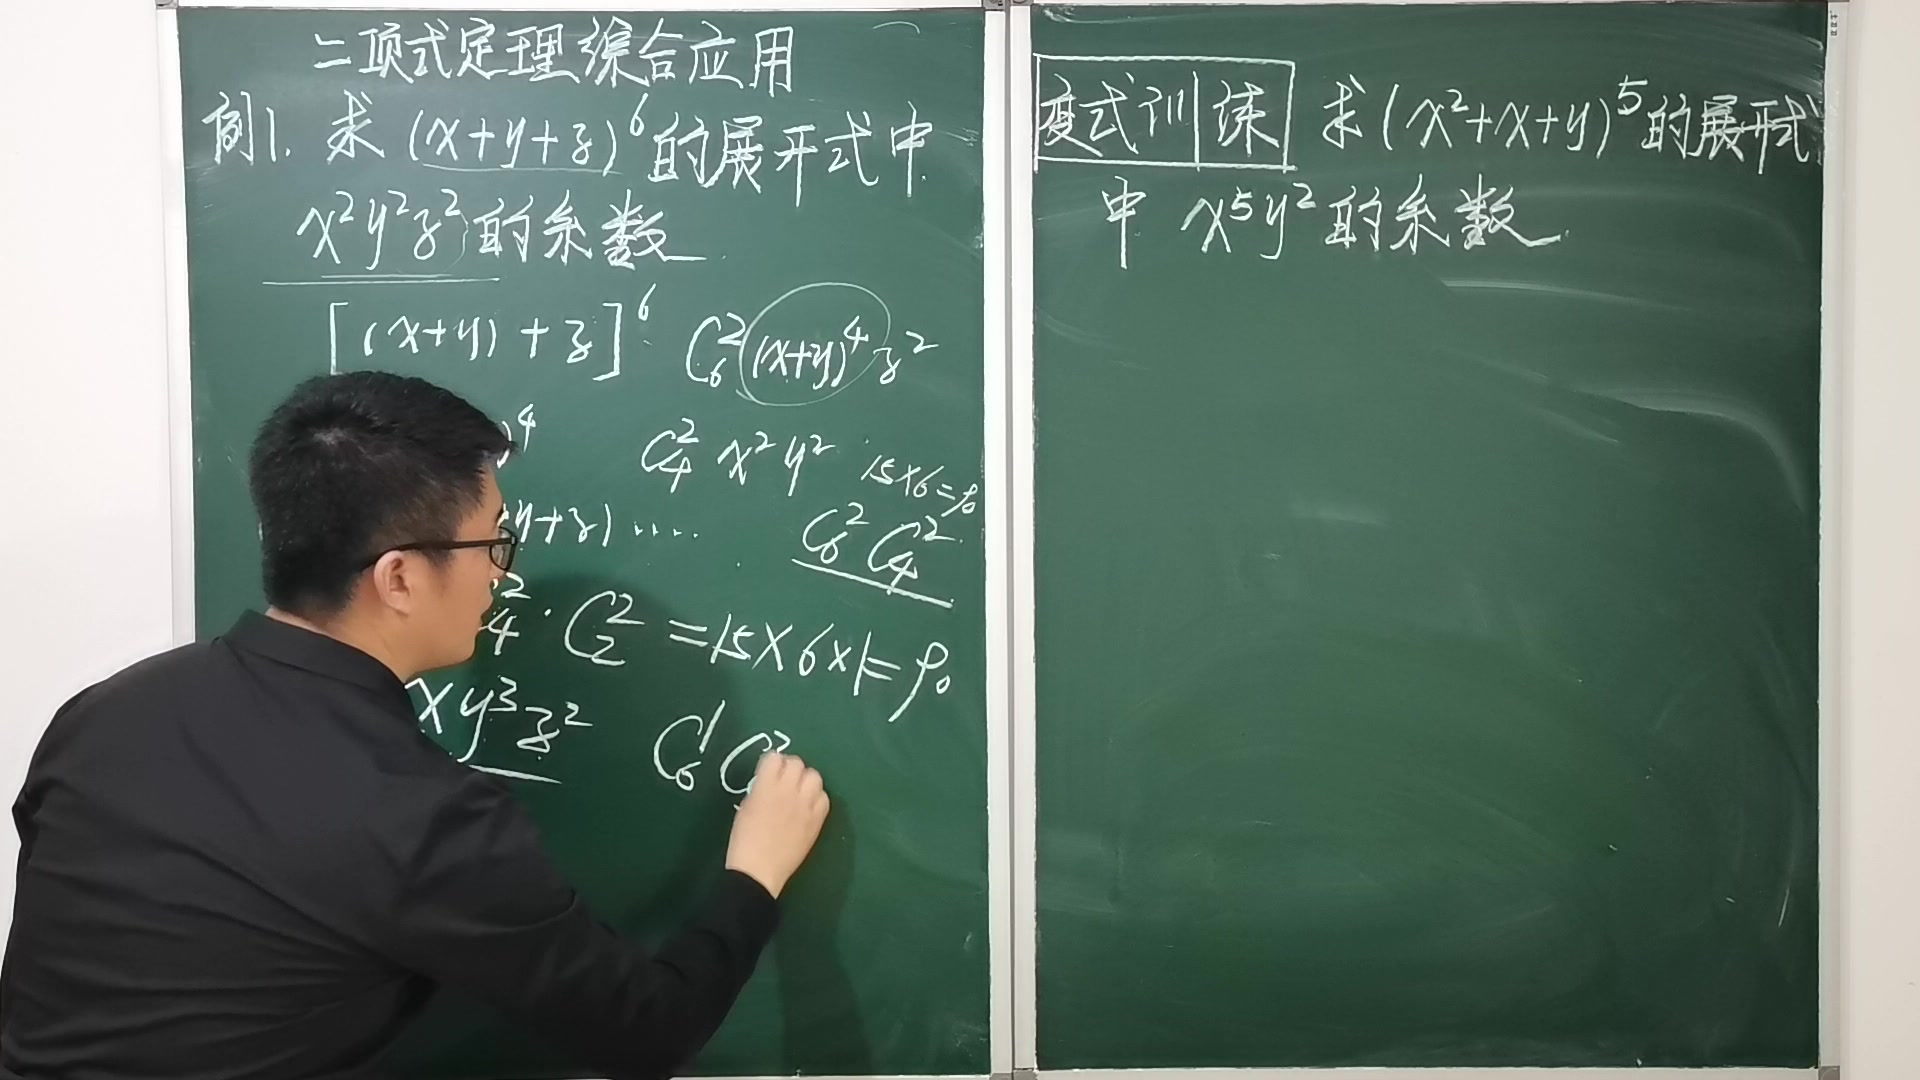 二项式定理综合应用
例1. 求(x+y+z)⁶的展开式中
x²y²z²的系数
[(x+y)+z]⁶ C₆²(x+y)⁴z²
)⁴ C₄² x² y² 15×6=90
y+z) .... C₆² C₄²
₄² · C₂² =15×6×1=90
xy³z² C₆¹ C
变式训练 求(x²+x+y)⁵的展开式
中 x⁵y²的系数